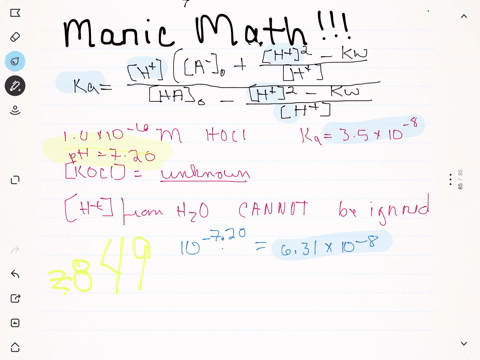 Manic Math!!!
Ka = [H+] ([A-]o + [H+]² - Kw / [H+]) / [HA]o - [H+]² - Kw / [H+]
1.0 x 10^-6 M HOCl Ka = 3.5 x 10^-8
pH = 7.20
[KOCl] = unknown
[H+] from H2O CANNOT be ignored
10^-7.20 = 6.31 x 10^-8